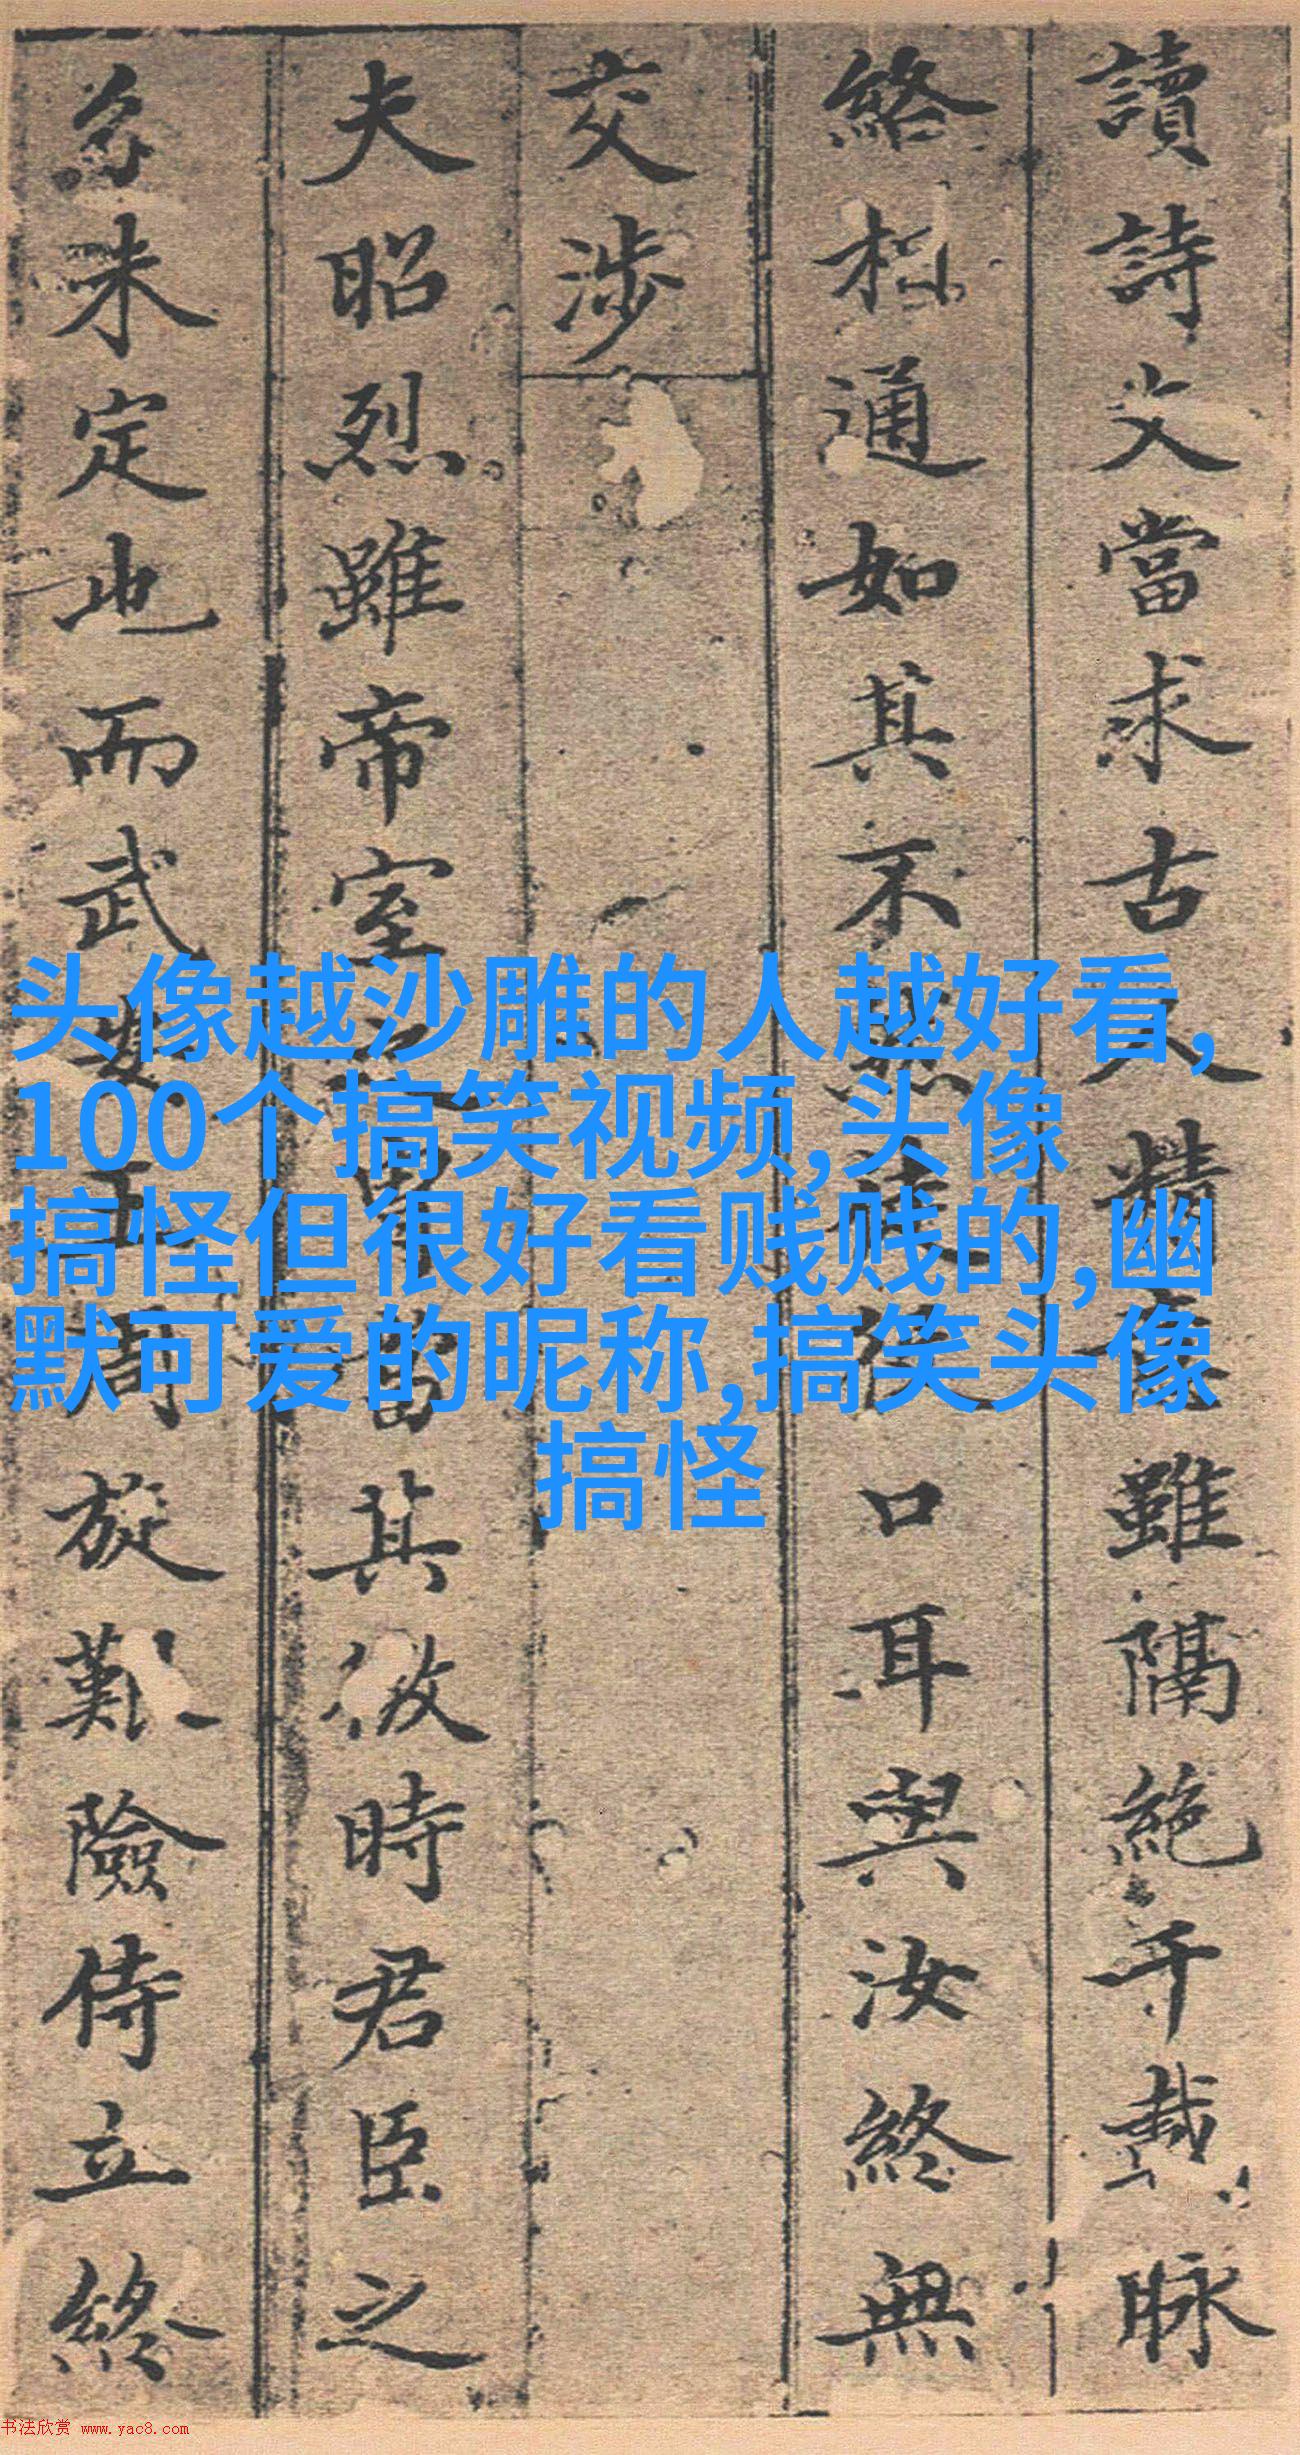 讀詩文當求古人精雖隔絶千載脉
絡相通如其不然徒口耳與汝終無
交涉
夫昭烈雖帝室之冑當其時君臣之
未定也而武周旋險侍立終
头像越沙雕的人越好看,
100个搞笑视频,头像
搞怪但很好看贱贱的,幽
默可爱的昵称,搞笑头像
搞怪
书法欣赏 www.yac8.com